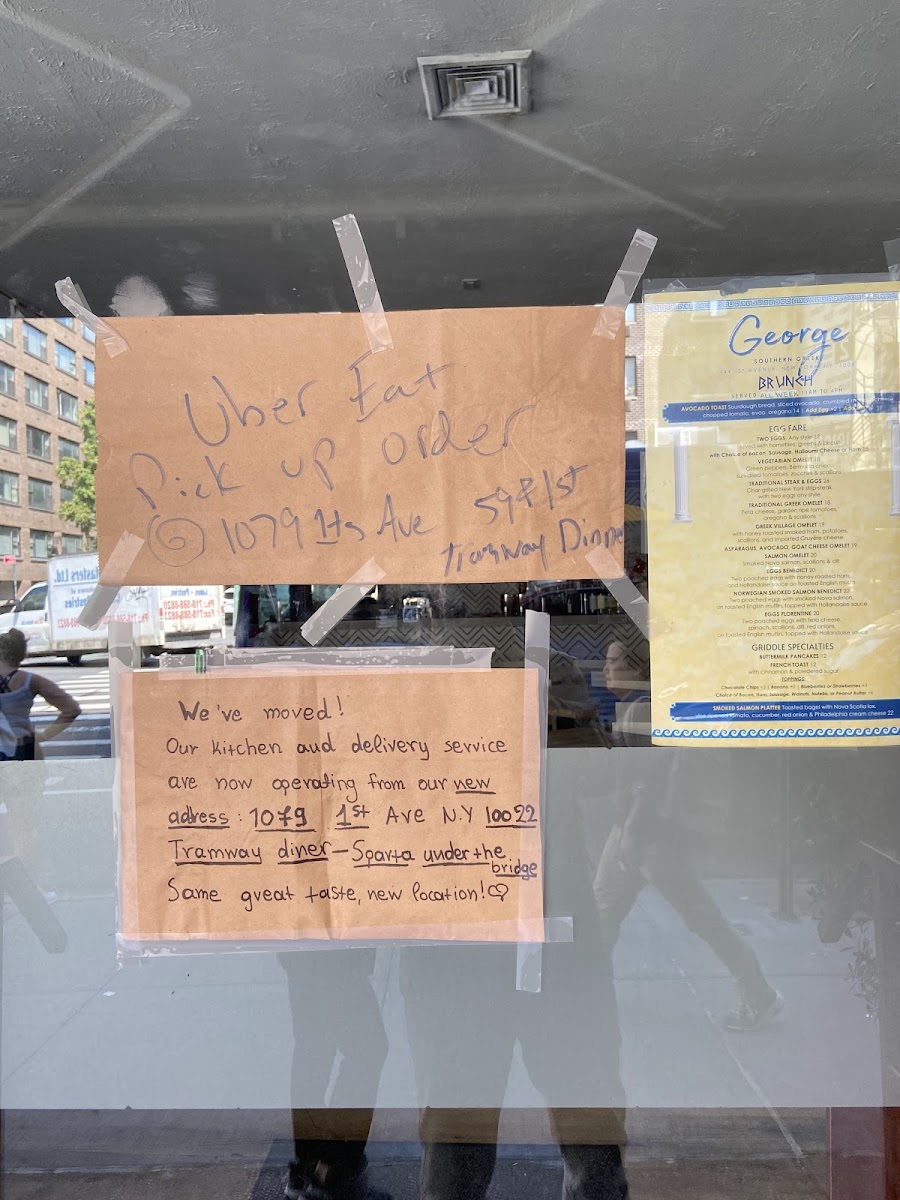 Uber Eat
Pick up order
@ 1079 1ts Ave 59 & 1st
Tramway Dinne
We've moved!
Our kitchen and delivery service
are now operating from our new
adress: 1079 1st Ave N.Y 10022
Tramway diner-Sparta under the
bridge
Same great taste, new location!♡
George
SOUTHERN GREEK
BRUNCH
SERVED ALL WEEK 11AM TO 4PM
AVOCADO TOAST Sourdough bread, sliced avocado, crumbled
chopped tomato, evoo, oregano 14 | Add Egg +2 | Add
EGG FARE
TWO EGGS, Any style
with Choice of bacon, Sausage, Halloumi Cheese or Ham
VEGETARIAN OMELET
TRADITIONAL STEAK & EGGS 26
Char-grilled New York strip steak
with two eggs any style
TRADITIONAL GREEK OMELET 18
Feta cheese, garden ripe tomatoes,
oregano & scallions
GREEK VILLAGE OMELET 19
with honey roasted smoked ham, potatoes,
scallions, and imported Gruyère cheese
ASPARAGUS, AVOCADO, GOAT CHEESE OMELET 19
SALMON OMELET 20
Smoked Nova salmon, scallions & dill
EGGS BENEDICT 20
Two poached eggs with honey roasted ham,
and Hollandaise sauce on toasted English muffin
NORWEGIAN SMOKED SALMON BENEDICT 22
Two poached eggs with smoked Nova salmon,
on toasted English muffin, topped with Hollandaise sauce
EGGS FLORENTINE 20
Two poached eggs with feta cheese
spinach, scallions, dill, red onions,
on toasted English muffin, topped with Hollandaise sauce
GRIDDLE SPECIALTIES
BUTTERMILK PANCAKES 12
FRENCH TOAST 12
with cinnamon & powdered sugar
TOPPINGS
Chocolate Chips +3 | Banana +3 | Blueberries or Strawberries
Choice of Bacon, Ham, Sausage, Walnuts, Nutella, or Peanut Butter
SMOKED SALMON PLATTER Toasted bagel with Nova Scotia lox,
vine ripened tomato, cucumber, red onion & Philadelphia cream cheese 22